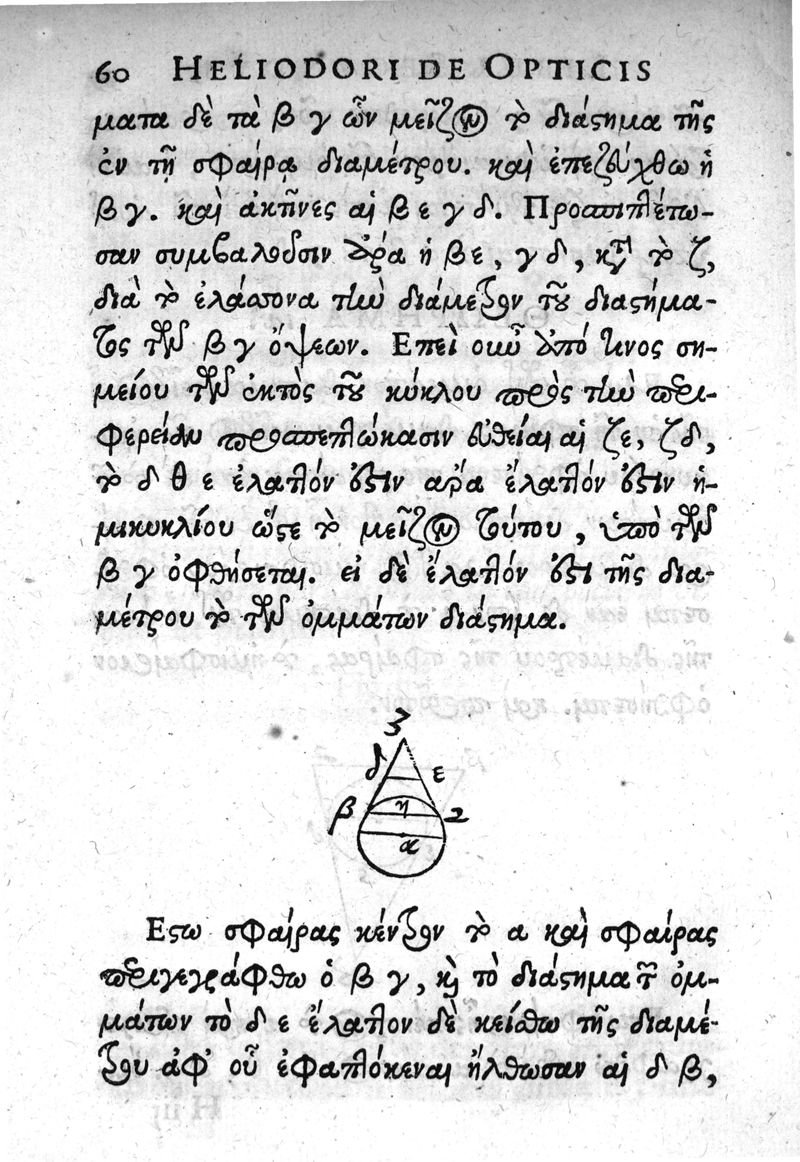 60 HELIODORI DE OPTICIS
ματα δὲ τὰ β γ ὧν μεῖζον τὸ διάστημα τῆς
ἐν τῇ σφαίρᾳ διαμέτρου. καὶ ἐπεζεύχθω ἡ
β γ. καὶ ἀκτῖνες αἱ β ε γ δ. Προσπιπλέτω-
σαν συμβαλοῦσιν ἄρα ἡ β ε, γ δ, κατὰ τὸ ζ,
διὰ τὸ ἐλάσσονα τὴν διάμετρον τοῦ διαστήμα-
τος τῶν β γ ὄψεων. Επεὶ οὖν ἀπό τινος ση-
μείου τῶν ἐκτὸς τοῦ κύκλου πρὸς τὴν περι-
φέρειαν προσπεπτώκασιν εὐθεῖαι αἱ ζε, ζδ,
τὸ δ θ ε ἐλαττόν ἐστιν ἄρα ἔλαττόν ἐστιν ἡ-
μικυκλίου ὥστε τὸ μεῖζον τούτου, ὑπὸ τῶν
β γ ὀφθήσεται. εἰ δὲ ἔλαττόν ἐστι τῆς δια-
μέτρου τὸ τῶν ὀμμάτων διάστημα.
ζ
δ ε
β η γ
α
Εστω σφαίρας κέντρον τὸ α καὶ σφαίρας
περιγεγράφθω ὁ β γ, καὶ τὸ διάστημα τῶν ὀμ-
μάτων τὸ δ ε ἔλαττον δὲ κείσθω τῆς διαμέ-
τρου ἀφ' οὗ ἐφαπτόμεναι ἤλθωσαν αἱ δ β,